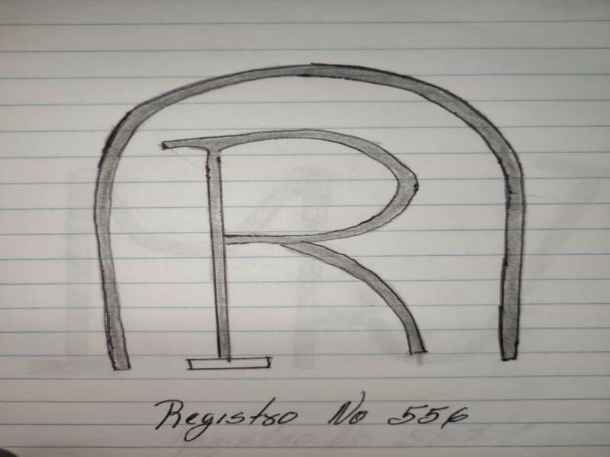 R
Registro No 556